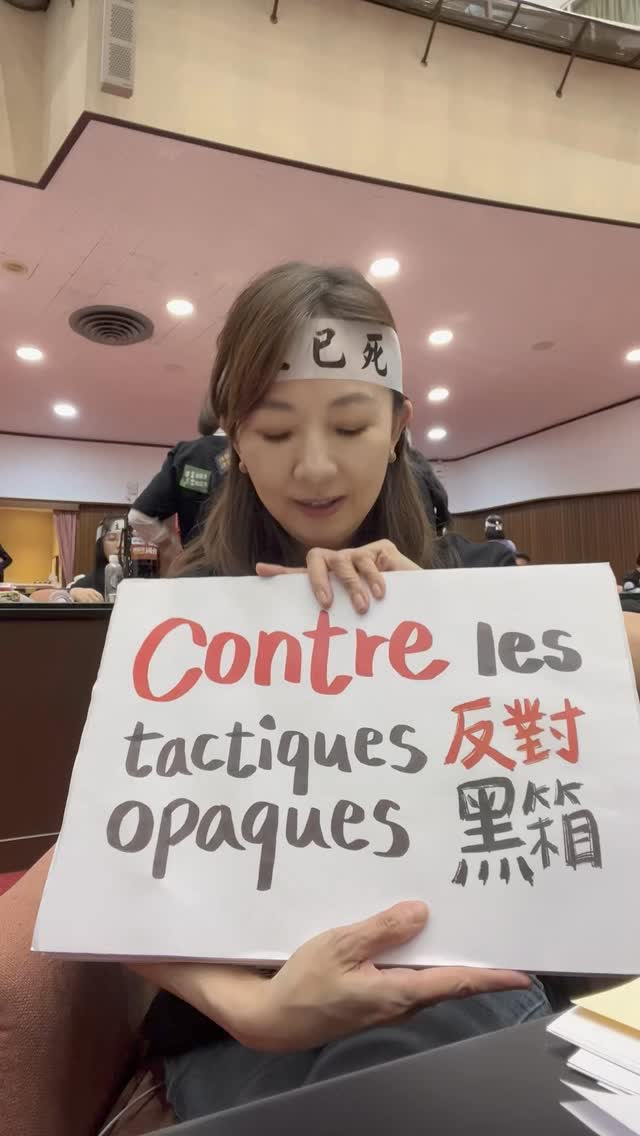 已死
Contre les
tactiques 反對
opaques 黑箱